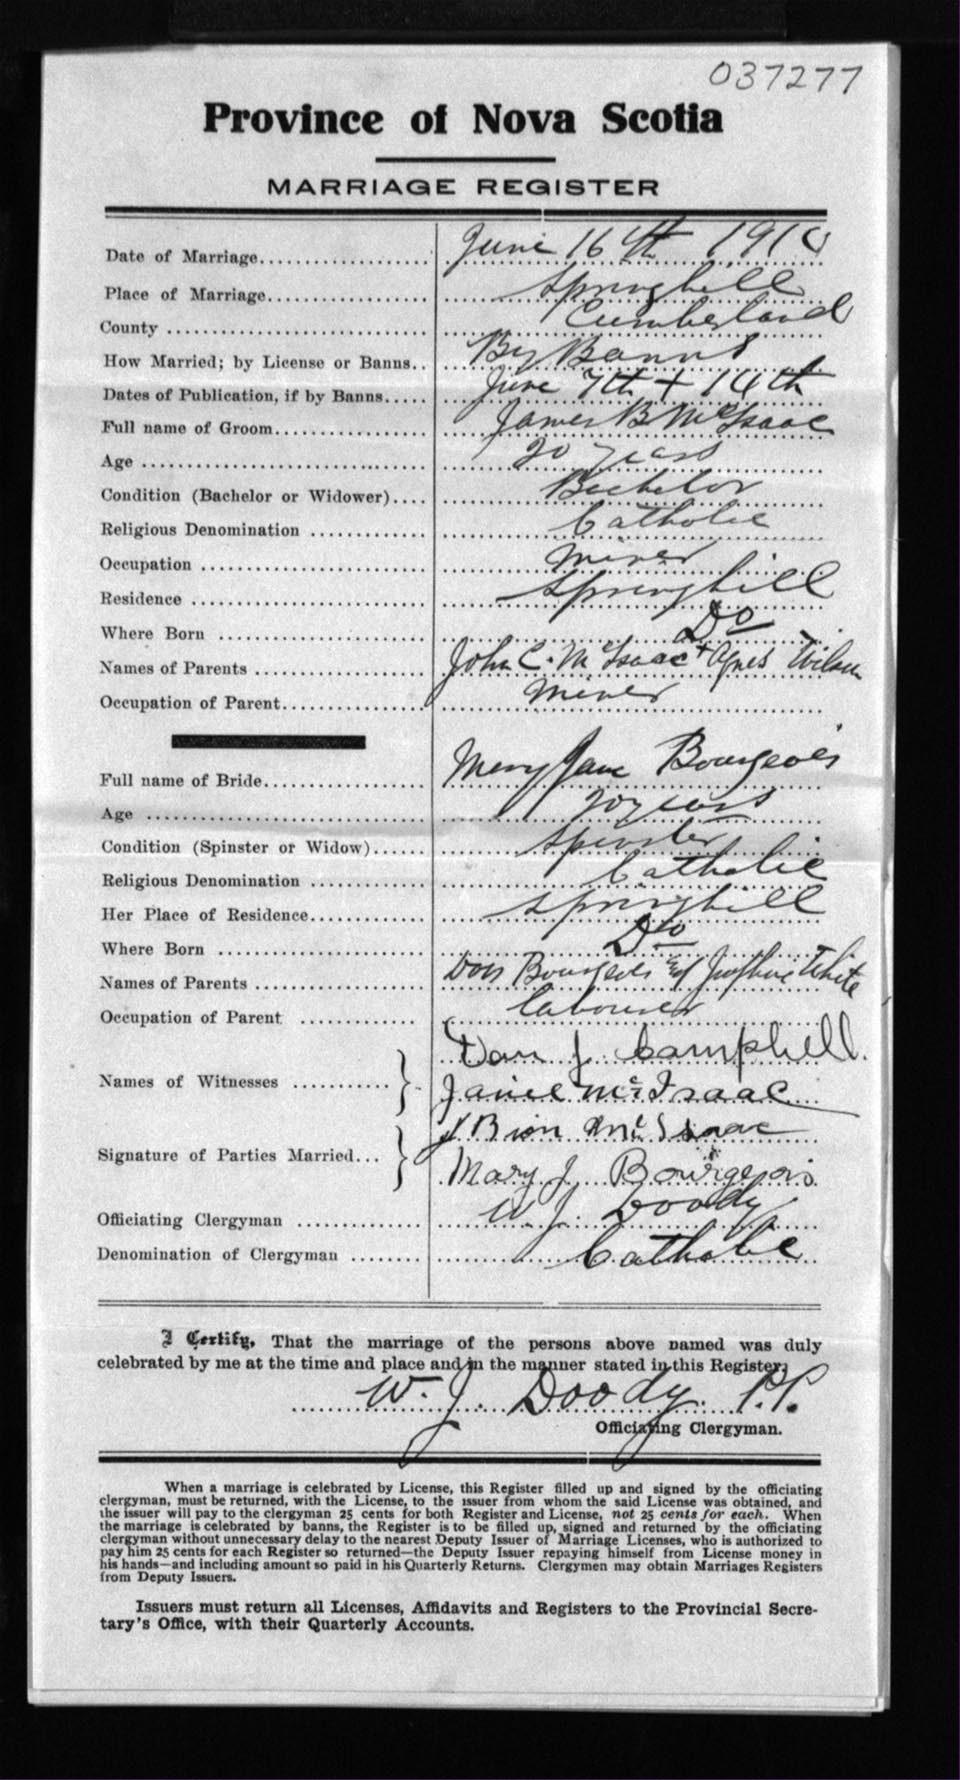 037277
Province of Nova Scotia
MARRIAGE REGISTER
Date of Marriage.................... June 16th 191
Place of Marriage................... Springhill
County ............................. Cumberland
How Married; by License or Banns.. By Banns
Dates of Publication, if by Banns..... June 7th + 14th
Full name of Groom.................. James B McIsaac
Age ................................ 20 years
Condition (Bachelor or Widower).... Bachelor
Religious Denomination ............. Catholic
Occupation ......................... Miner
Residence .......................... Springhill
Where Born ......................... Do
Names of Parents ................... John C. McIsaac + Agnes Wilson
Occupation of Parent................ Miner
Full name of Bride.................. Mary Jane Bourgeois
Age ................................ 20 years
Condition (Spinster or Widow)...... Spinster
Religious Denomination ............. Catholic
Her Place of Residence.............. Springhill
Where Born ......................... Do
Names of Parents ................... Bourgeois Josphine White
Occupation of Parent ............... labourer
Dan J. Campbell.
Names of Witnesses ........... } Janie McIsaac
J Bion McIsaac
Signature of Parties Married... } Mary J. Bourgeois
Officiating Clergyman .............. W. J. Doody
Denomination of Clergyman ........ Catholic
I Certify, That the marriage of the persons above named was duly
celebrated by me at the time and place and in the manner stated in this Register.
W. J. Doody. P.P.
Officiating Clergyman.
When a marriage is celebrated by License, this Register filled up and signed by the officiating
clergyman, must be returned, with the License, to the issuer from whom the said License was obtained, and
the issuer will pay to the clergyman 25 cents for both Register and License, not 25 cents for each. When
the marriage is celebrated by banns, the Register is to be filled up, signed and returned by the officiating
clergyman without unnecessary delay to the nearest Deputy Issuer of Marriage Licenses, who is authorized to
pay him 25 cents for each Register so returned—the Deputy Issuer repaying himself from License money in
his hands—and including amount so paid in his Quarterly Returns. Clergymen may obtain Marriages Registers
from Deputy Issuers.
Issuers must return all Licenses, Affidavits and Registers to the Provincial Secre-
tary's Office, with their Quarterly Accounts.